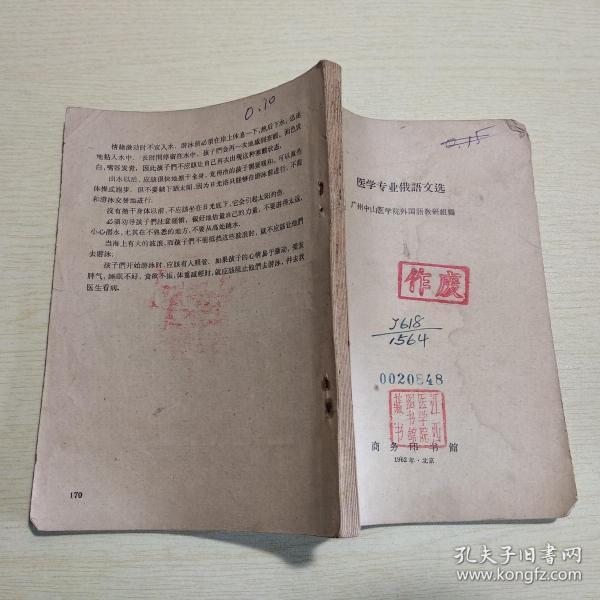 0.10
情緒激动时不宜入水。游泳前必須在岸上休息一下,然后下水,迅速
地黏入水中。长时間停留在水中,孩子們会再一次地感到寒顫,面色淡
白,嘴唇发青,因此孩子們不应該让自己再次出現这种寒顫状态。
出水以后,应該很快地擦干全身。
体操或跑步,但不要躺下晒太阳,因为日光浴只能够在游泳前进行,不能
和游泳交替地进行。
沒有擦干身体以前,不应該坐在日光底下,它会引起太阳的伤。
必須劝导孩子們注意謹慎,很好地估量自己的力量,不要游得太远,
小心潜水,尤其在不熟悉的地方,不要从高处跳水。
当海上有大的波浪,而孩子們不能抵抗这些波浪时,就不应該让他們
去游泳。
孩子們开始游泳时,应該有人照管。如果孩子的心情易于激动,爱发
脾气,睡眠不好,食欲不振,体重减輕时,就应該阻止他們去游泳,并去找
医生看病。
170
0.15
医学专业俄語文选
广州中山医学院外国語教研組編
作废
J618
1564
0020848
江西
医学院
图书館
藏书
商务印书館
1962年·北京
孔夫子旧书网
www.kongfz.com